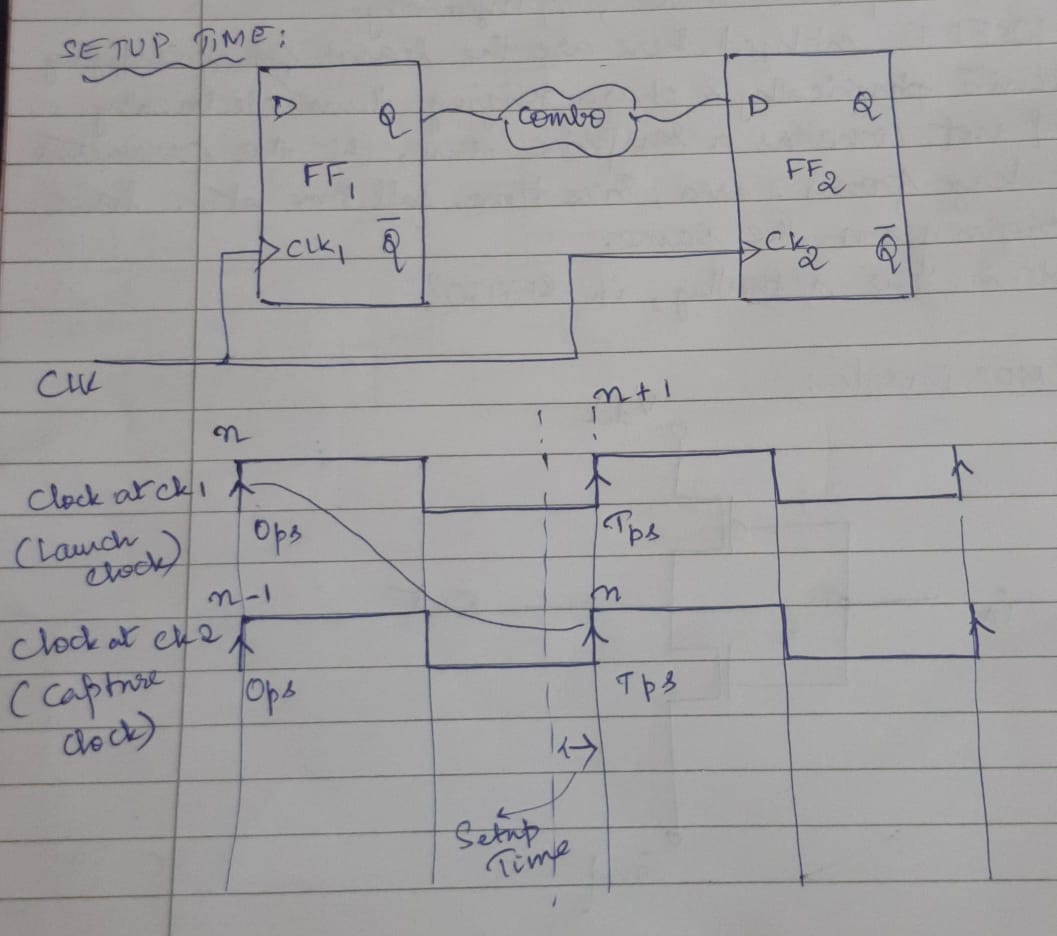 SETUP TIME:
D Q
FF1
CLK1 Q̅
Combo
D Q
FF2
CK2 Q̅
CLK
n n+1
Clock at ck1
(Launch
clock)
0ps Tps
n-1 n
Clock at ck2
(Capture
clock)
0ps Tps
Setup
Time